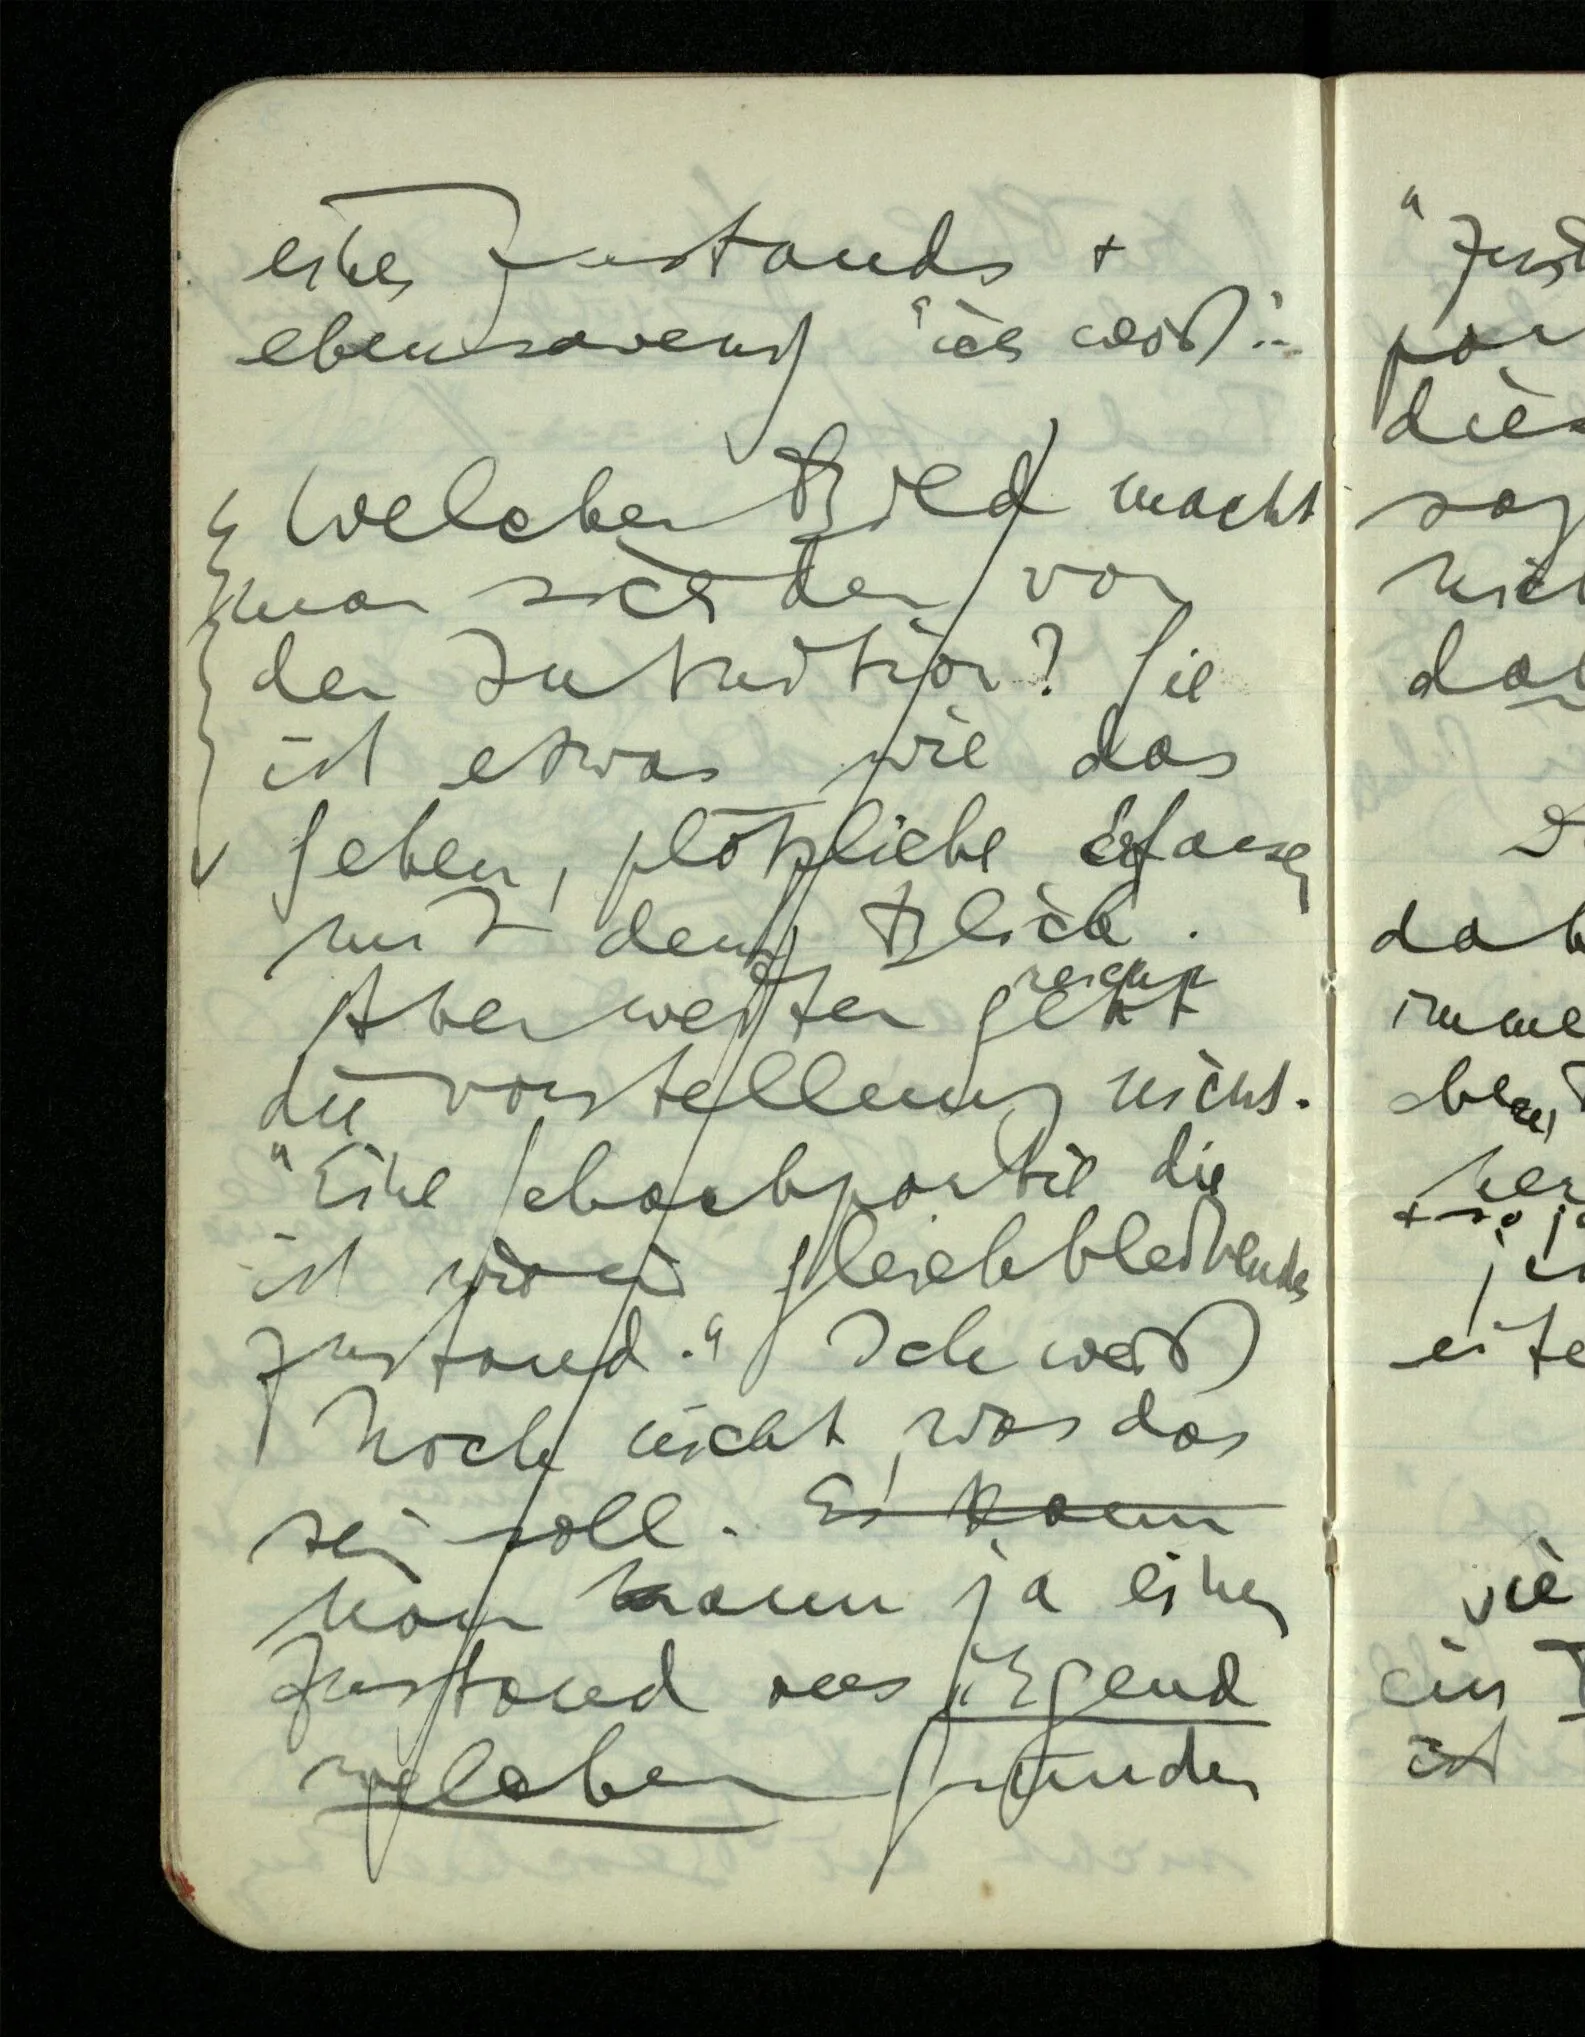 eines Zustands +
ebensowenig "ich weiß".
Welches Bild macht
man sich den von
der Intuition? Sie
ist etwas wie das
Sehen, plötzliche Erfassen
mit dem Blick.
reicht
Aber weiter geht
die Vorstellung nicht.
"Eine Schachpartie die
ist gleichbleibender
Zustand." Ich weiß
noch nicht, was das
sein soll. Es kann
Man kann ja einen
Zustand aus irgend
welchen Gründen
"Zust
die
nich
imme
aber,
vie
ein
ist